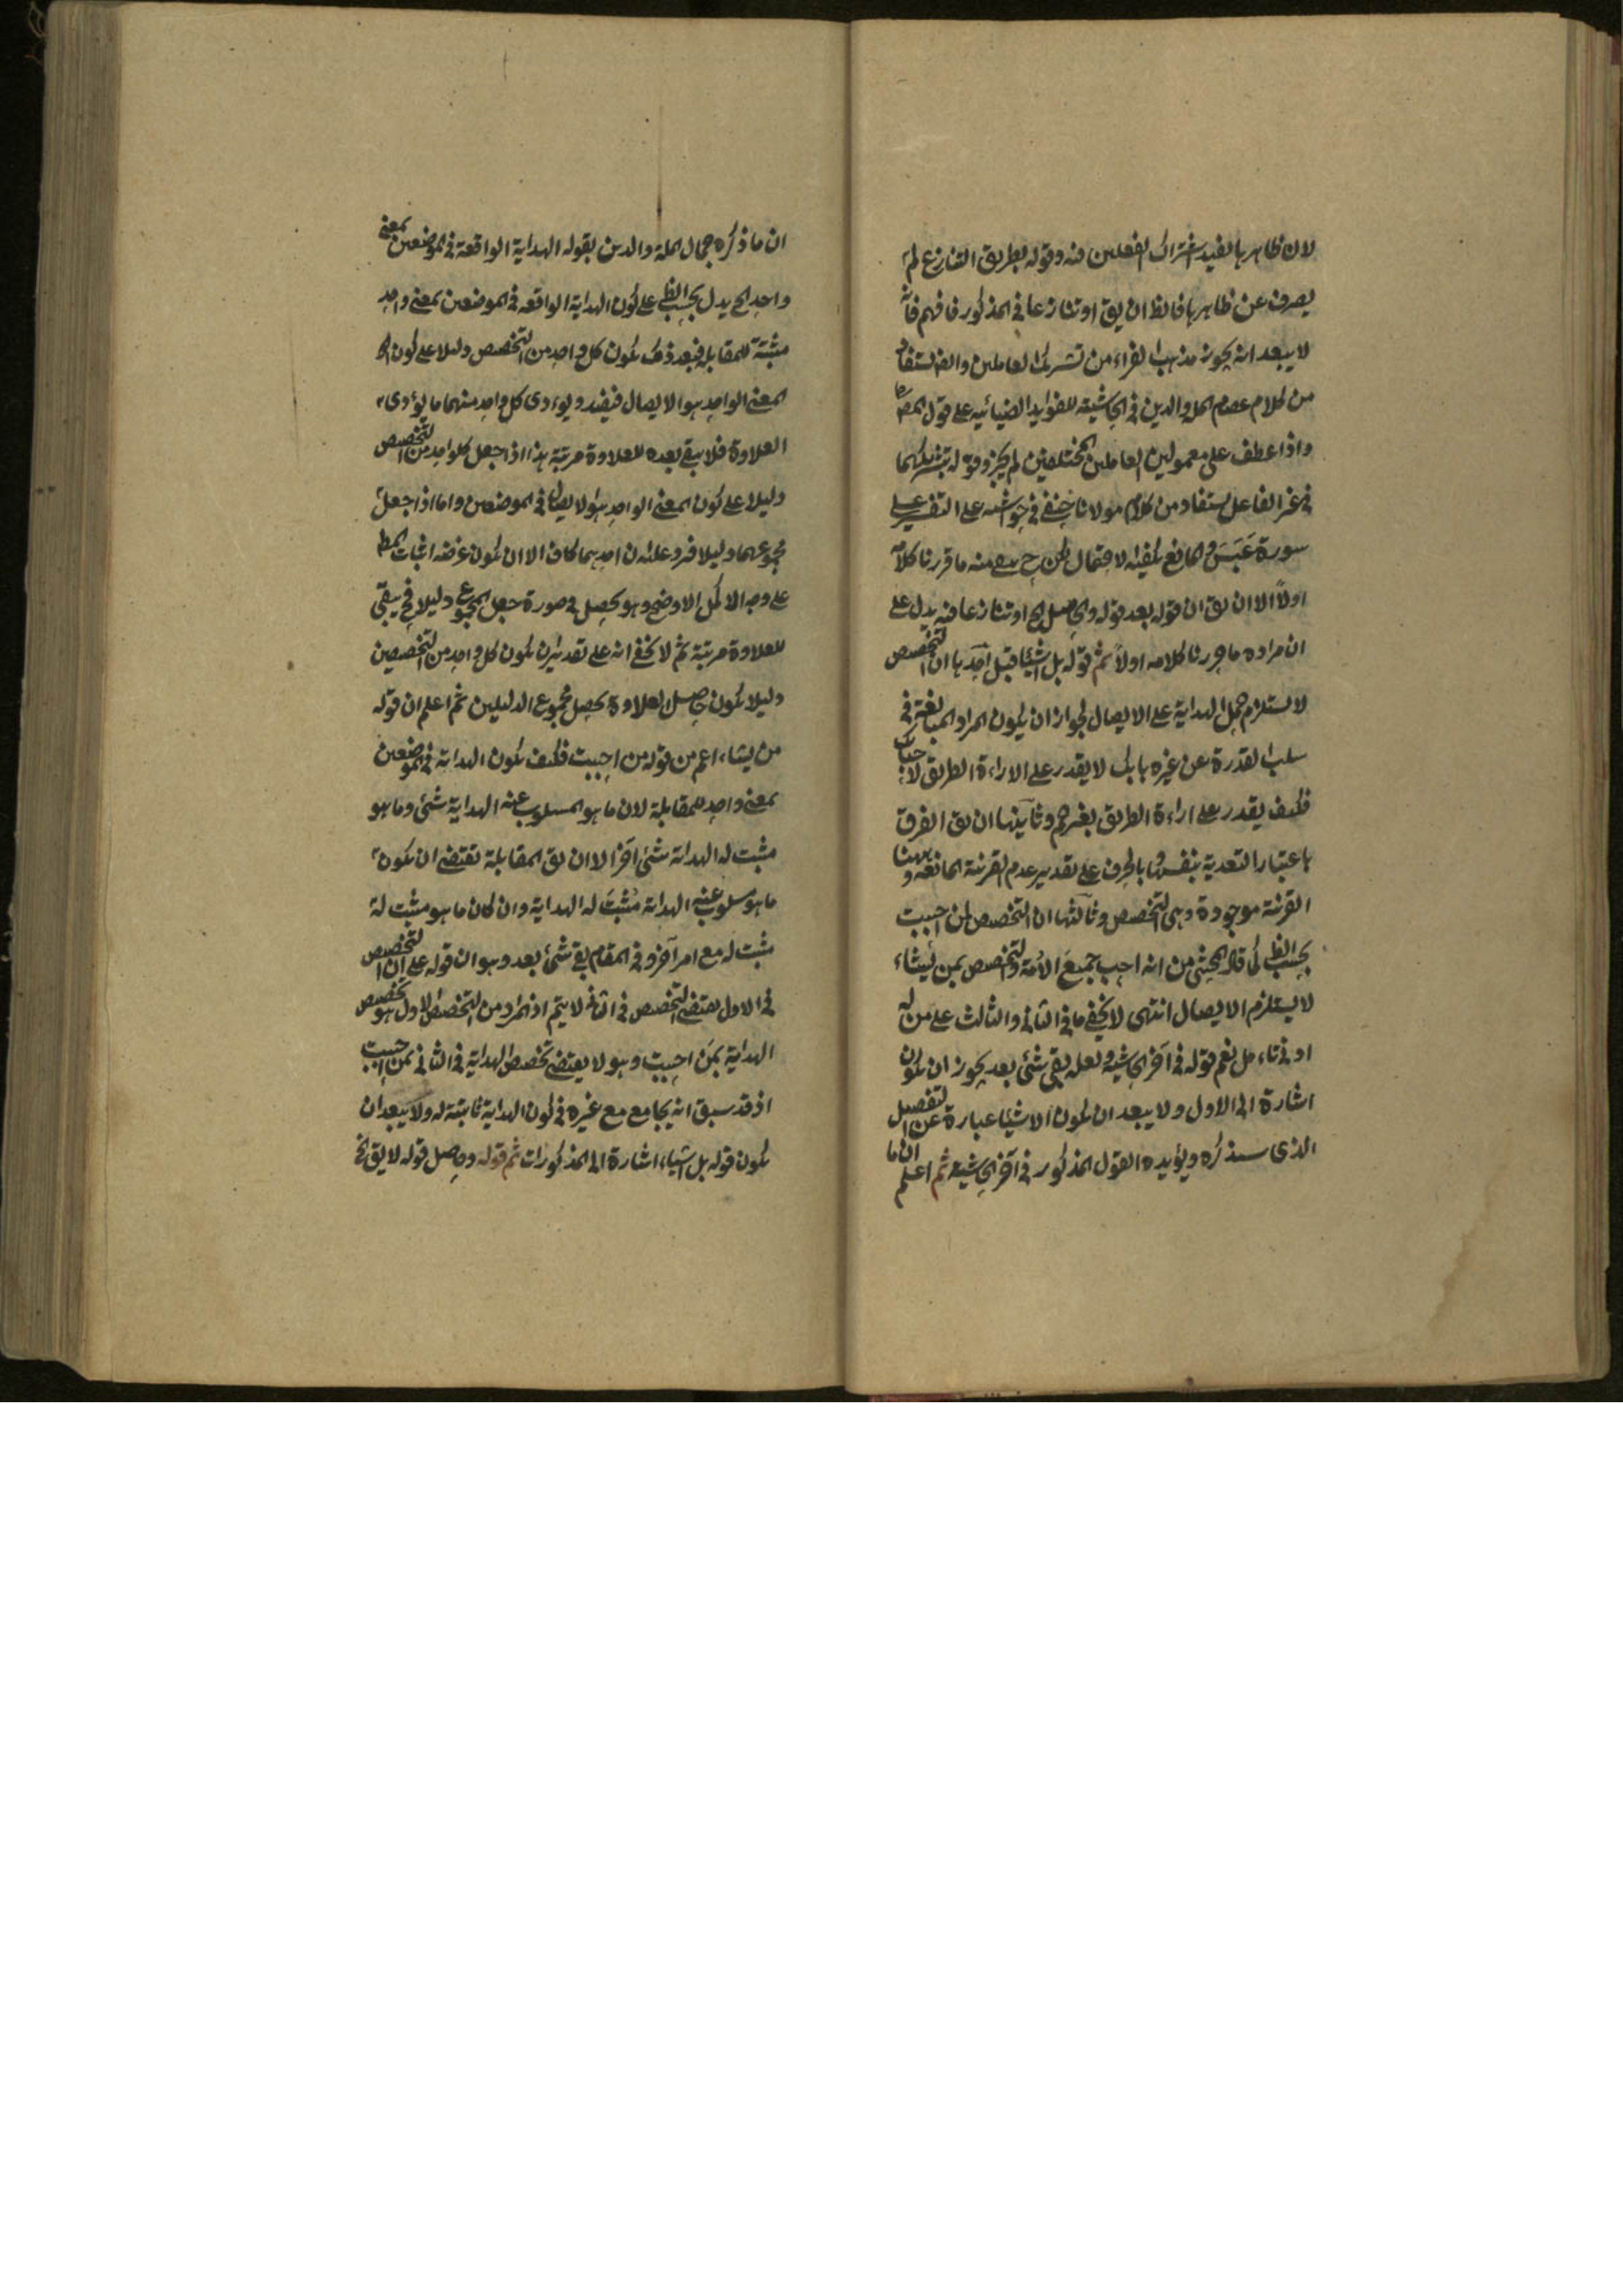 لان ظاهرها يفيد اشتراك الفعلين فيه وقوله بطريق التنازع لم
يصرف عن ظاهرها فالظ ان يق او تنازعا في المذكور فافهم فانه
لا يبعد انه يجوز مذهب الفراء من تشريك العاملين والف يستفاد
من كلام عصام الملة والدين في الحاشية للفوايد الضيائيه على قول المص
واذا عطف على معمولين العاملين المختلفين لم يجز وقوله بتشريكهما
في غير الفاعل يستفاد من كلام مولانا خنفي في حواشيه على التفسير على
سورة عَبَسَ والمانع يكفيه الاحتمال لكن ح منه ما قررنا كلامه
اولاً الا ان يق ان قوله بعد قوله والحاصل الخ او تنازعا فيه يدل على
ان مراده ما حررنا كلامه اولاً ثم قوله بل اشياء قيل احدها ان التخصيص
لا يستلزم حمل الهداية على الايصال لجواز ان يكون المراد المبالغة في
سلب القدرة عن غيره بانك لا يقدر على الاراءة الطريق لاحبابك
فكيف يقدر على اراءة الطريق بغيرهم وثانيها ان يق الفرق
باعتبار التعدية بنفسها وبالحرف على تقدير عدم القرينة المانعه وههنا
القرينة موجودة وهى التخصيص وثالثها ان التخصيص لمن احببت
بحسب الظ كما قال المحشى من انه احب جميعَ الامّة والتخصيص بمن يشاء
لا يستلزم الايصال انتهى لا يخفى ما في الثاني والثالث على من له
ادنى تاءمل نعم قوله في آخر الحاشية ولعله بقي شئ بعد يجوز ان يكون
اشارة الى الاول ولا يبعد ان يكون الاشياء عبارة عن التفصيل
الذى سنذكره ويؤيده القول المذكور في آخر الحاشية ثم اعلم ان ما
ان ما ذكره جمال الملة والدين بقوله الهداية الواقعة في الموضعين بمعنى
واحد الخ يدل بحسب الظ على كون الهداية الواقعه في الموضعين بمعنى واحد
مثبتة للمقابلة فبعد ذلك يكون كل واحد من التخصيص دليلا على كون
المعنى الواحد هو الايصال فيفيد ويوءدى كل واحد منهما ما يوءدى
العلاوة فلا يبقى بعده للعلاوة مرتبة هذا اذا جعل كلواحد من التخصيص
دليلا على كون المعنى الواحد هو الايصال في الموضعين واما اذا جعل
مجموعهما دليلا فيرد عليه ان احدهما كاف الا ان يكون غرضه اثبات المط
على وجه الاكمل الاوضح وهو يحصل في صورة جعل المجموع دليلا فح يبقى
للعلاوة مرتبة ثم لا يخفى انه على تقدير ان يكون كل واحد من التخصيصين
دليلا يكون حاصل العلاوة يحصل مجموع الدليلين ثم اعلم ان قوله
من يشاء اعم من قوله من احببت فكيف يكون الهداية في الموضعين
بمعنى واحد للمقابلة لان ما هو المسلوب عنه الهداية شئ وما هو
مثبت له الهداية شئ آخر الا ان يق المقابلة تقتضى ان يكون
ما هو مسلوب عنه الهداية مُثبتَ له الهداية وان كان ما هو مثبت له
مثبت له مع امر آخر وفي المقام بقى شئ بعد وهو ان قوله على ان التخصيص
في الاول يقتضى التخصيص في الثاني لا يتم اذ المراد من التخصيص الاول هو تخصيص
الهداية بمَن احببت وهو لا يقتضى تخصيص الهداية في الثاني بمن احببت
اذ قد سبق انه يجامع مع غيره في كون الهداية ثابتة له ولا يبعد ان
يكون قوله بل اشياء اشارة الى المذكورات ثم قوله وحاصل قوله لا يق الخ